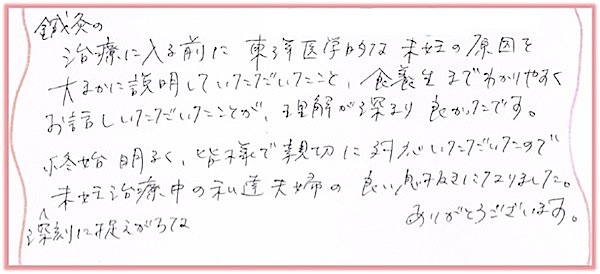 鍼灸の
治療に入る前に 東洋医学的な 不妊の原因を
大まかに説明していただいたこと、食養生までわかりやすく
お話しいただいたことが、理解が深まり 良かったです。
終始 明るく、皆様で親切に対応いただいたので
不妊治療中の私達夫婦の 良い息抜きになりました。
深刻に捉えがちな
ありがとうございます。